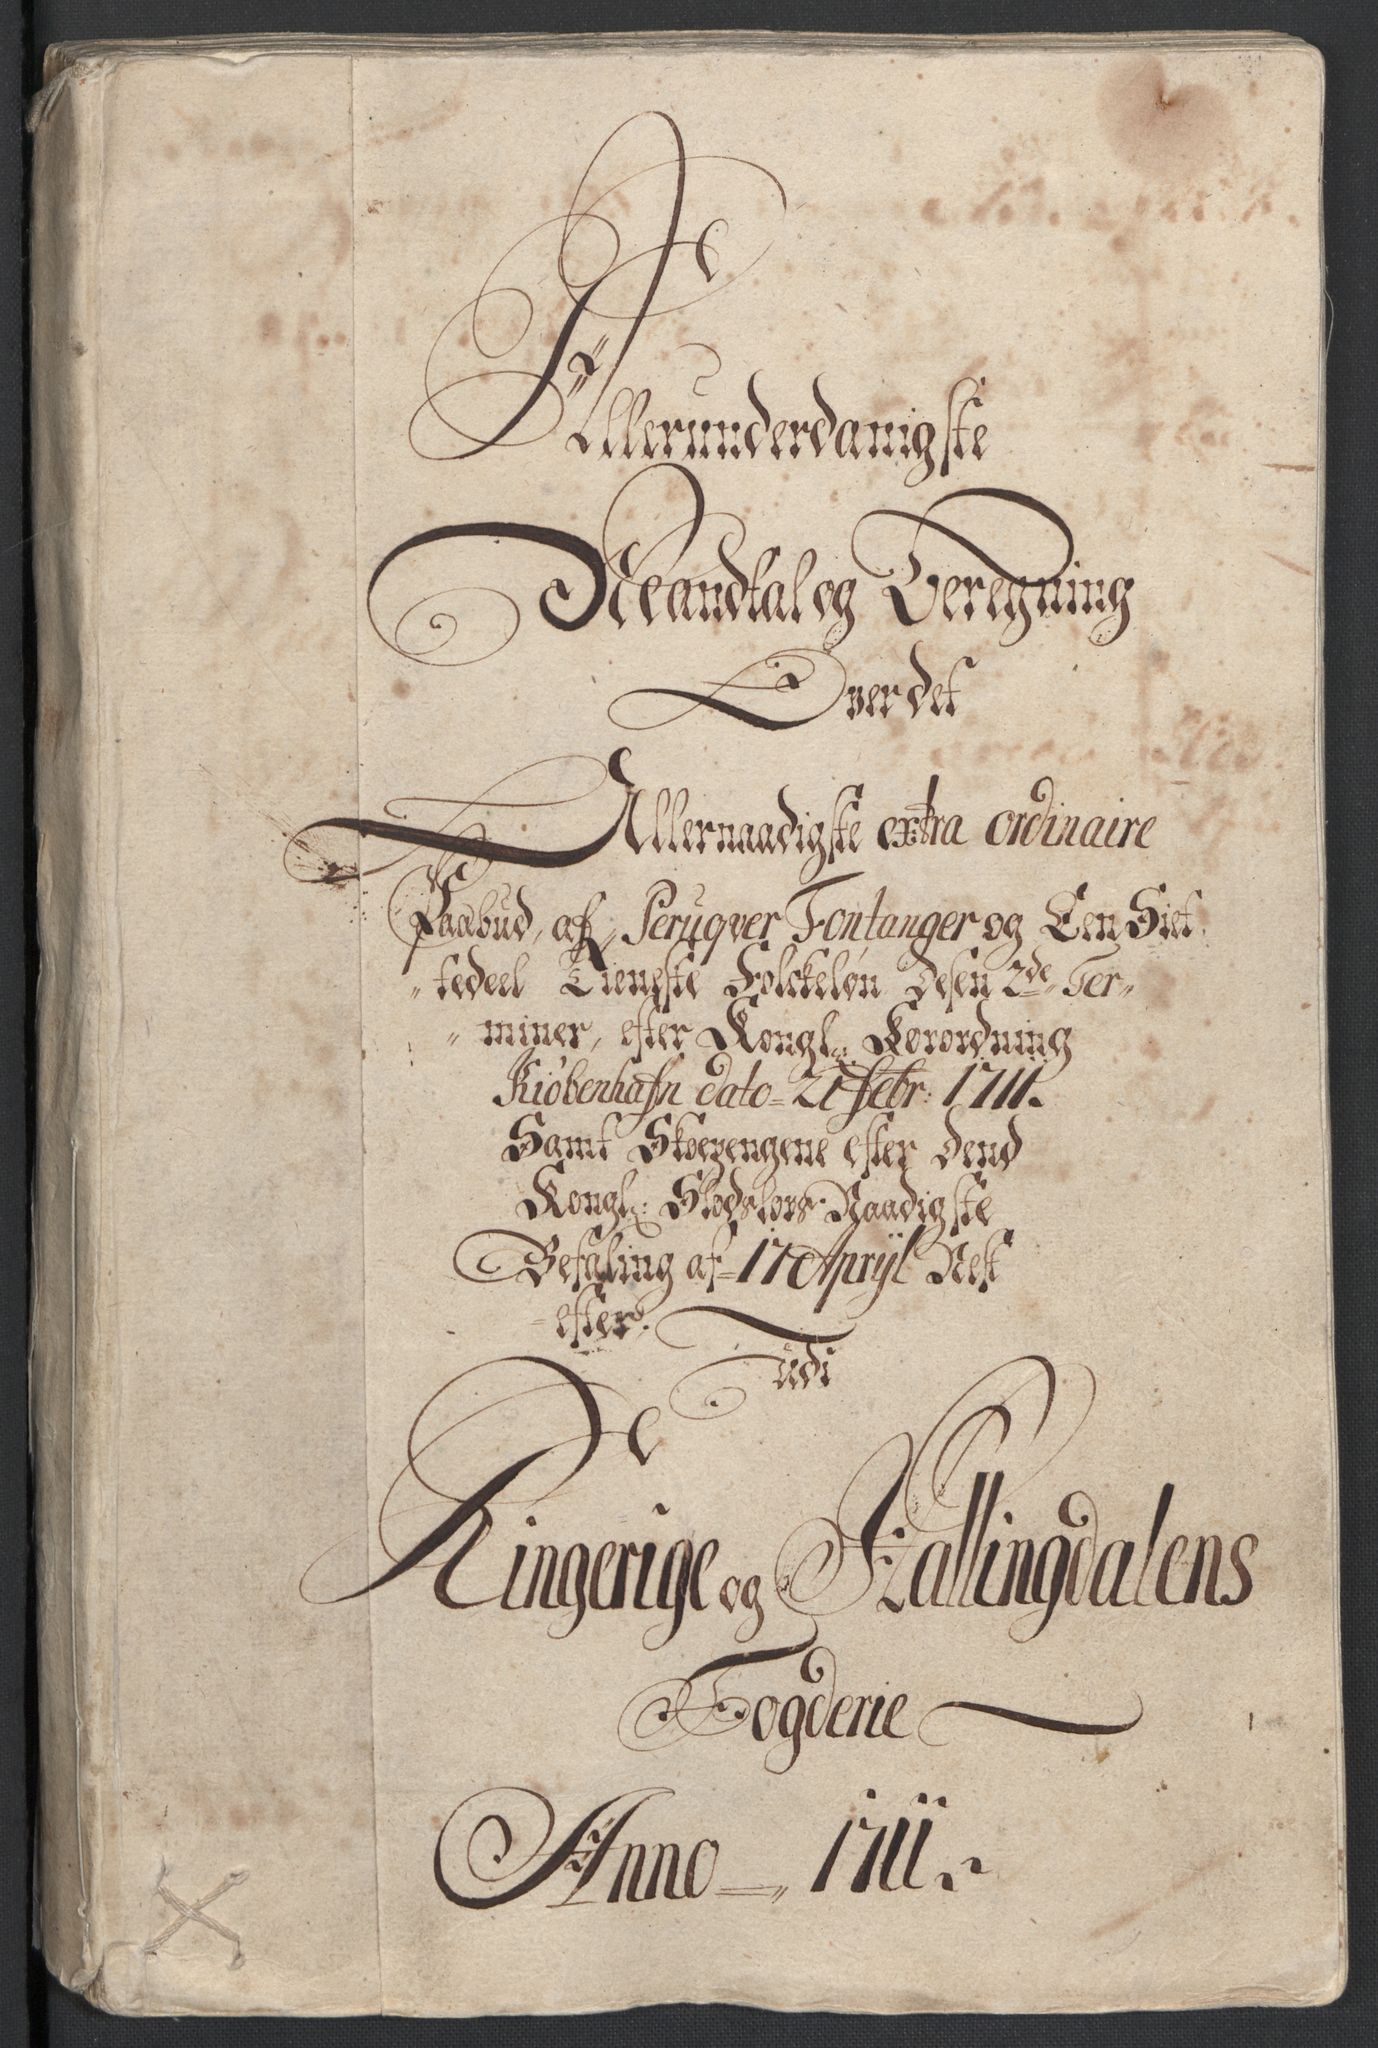 Allerunderdanigste
Mandtal og Beregning
Over det
Allernaadigste extra ordinaire
Paabud, af Peruqver Fontanger og Een Siet
tedeel Tieneste Folckeløn desen 2de Ter-
miner, efter Kongl: Forordning
Kiøbenhafn dato 21 febr: 1711.
Samt Skoepengene efter dend
Kongl: Slodslovs Naadigste
Befaling af 17 Apryl Nest
efter.
Udi
Ringerige og Hallingdalens
Fogderie
Anno 1711.